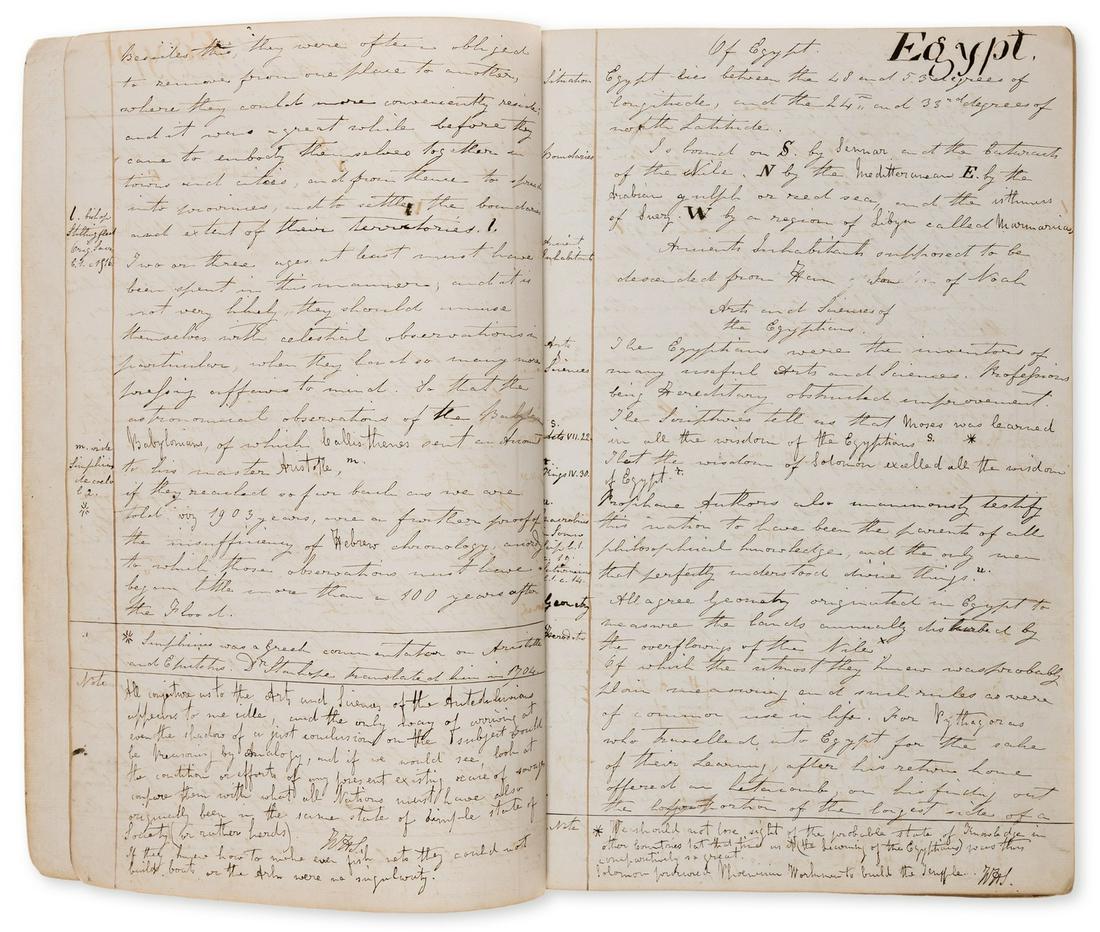 Besides this, they were often obliged
to remove from one place to another,
where they could more conveniently reside;
and it was a great while before they
came to embody themselves together in
towns and cities, and from thence to spread
into provinces, and to settle the boundaries
and extent of their territories. l.
l. bishop
Stillingfleet
Orig. Sacr.
Two or three ages at least must have
been spent in this manner; and it is
not very likely, they should amuse
themselves with celestial observations in
particular, when they had so many more
pressing affairs to mind. So that the
astronomical observations of the Babylon
Babylonians, of which Callisthenes sent an Account
to his master Aristotle, m.
m. vide
Simplicius
de coelo
l. 2.
*
if they reached so far back as we are
told viz 1903 years, are a further proof of
the insufficiency of Hebrew chronology, accord
to which those observations must have
began little more than a 100 years after
the Flood.
* Simplicius was a Greek commentator on Aristotle
and Epictetus. Dr Stanhope translated him in 1704
Note
All conjecture as to the Arts and Sciences of the Antediluvians
appears to me idle, and the only way of arriving at
even the shadow of a just conclusion on the subject would
be Reasoning by analogy, and if we would see, look at
the condition or efforts of any present existing race of savages
compare them with what all Nations must have also
originally been in the same state of simple state of
Society (or rather herds)
WHS.
If they knew how to make even fish nets they could not
build boats or the Ark were no singularity.
Egypt.
Of Egypt.
Situation
Egypt lies between the 48 and 53 degrees of
longitude, and the 24th and 33rd degrees of
north Latitude.
Boundaries
Is bound on S. by Sennar and the Cataracts
of the Nile. N by the Mediterranean E. by the
Arabian gulph or red sea, and the isthmus
of Suez. W by a region of Libya called Marmarica
Ancient
Inhabitants
Ancients Inhabitants supposed to be
descended from Ham, Son of Noah
Arts and Sciences of
the Egyptians.
Art
&
Sciences
The Egyptians were the inventors of
many useful Arts and Sciences. Professions
being Hereditary obstructed improvement
The Scriptures tell us that Moses was learned
in all the wisdom of the Egyptians s. *
s.
Acts VII. 22
That the wisdom of Solomon excelled all the wisdom
of Egypt. t.
t.
Kings IV. 30.
Prophane Authors also unanimously testify
this nation to have been the parents of all
philosophical knowledge, and the only men
that perfectly understood divine things. u.
u.
Macrobius
in Somn
Geometry
All agree Geometry originated in Egypt to
measure the lands annually disturbed by
the overflowings of the Nile x
Herodots
Of which the utmost they knew was probably
plain measuring and such rules as were
of common use in life. For Pythagoras
who travelled into Egypt for the sake
of their learning, after his return home
offered an hetacomb, on his finding out
the proportion of the longest sides of a
Note
* We should not lose sight of the probable state of Knowledge in
other countries at that time as if (the learning of the Egyptians) was thus
comparatively so great.
Solomon procured Phoenician Workmen to build the Temple. WHS.